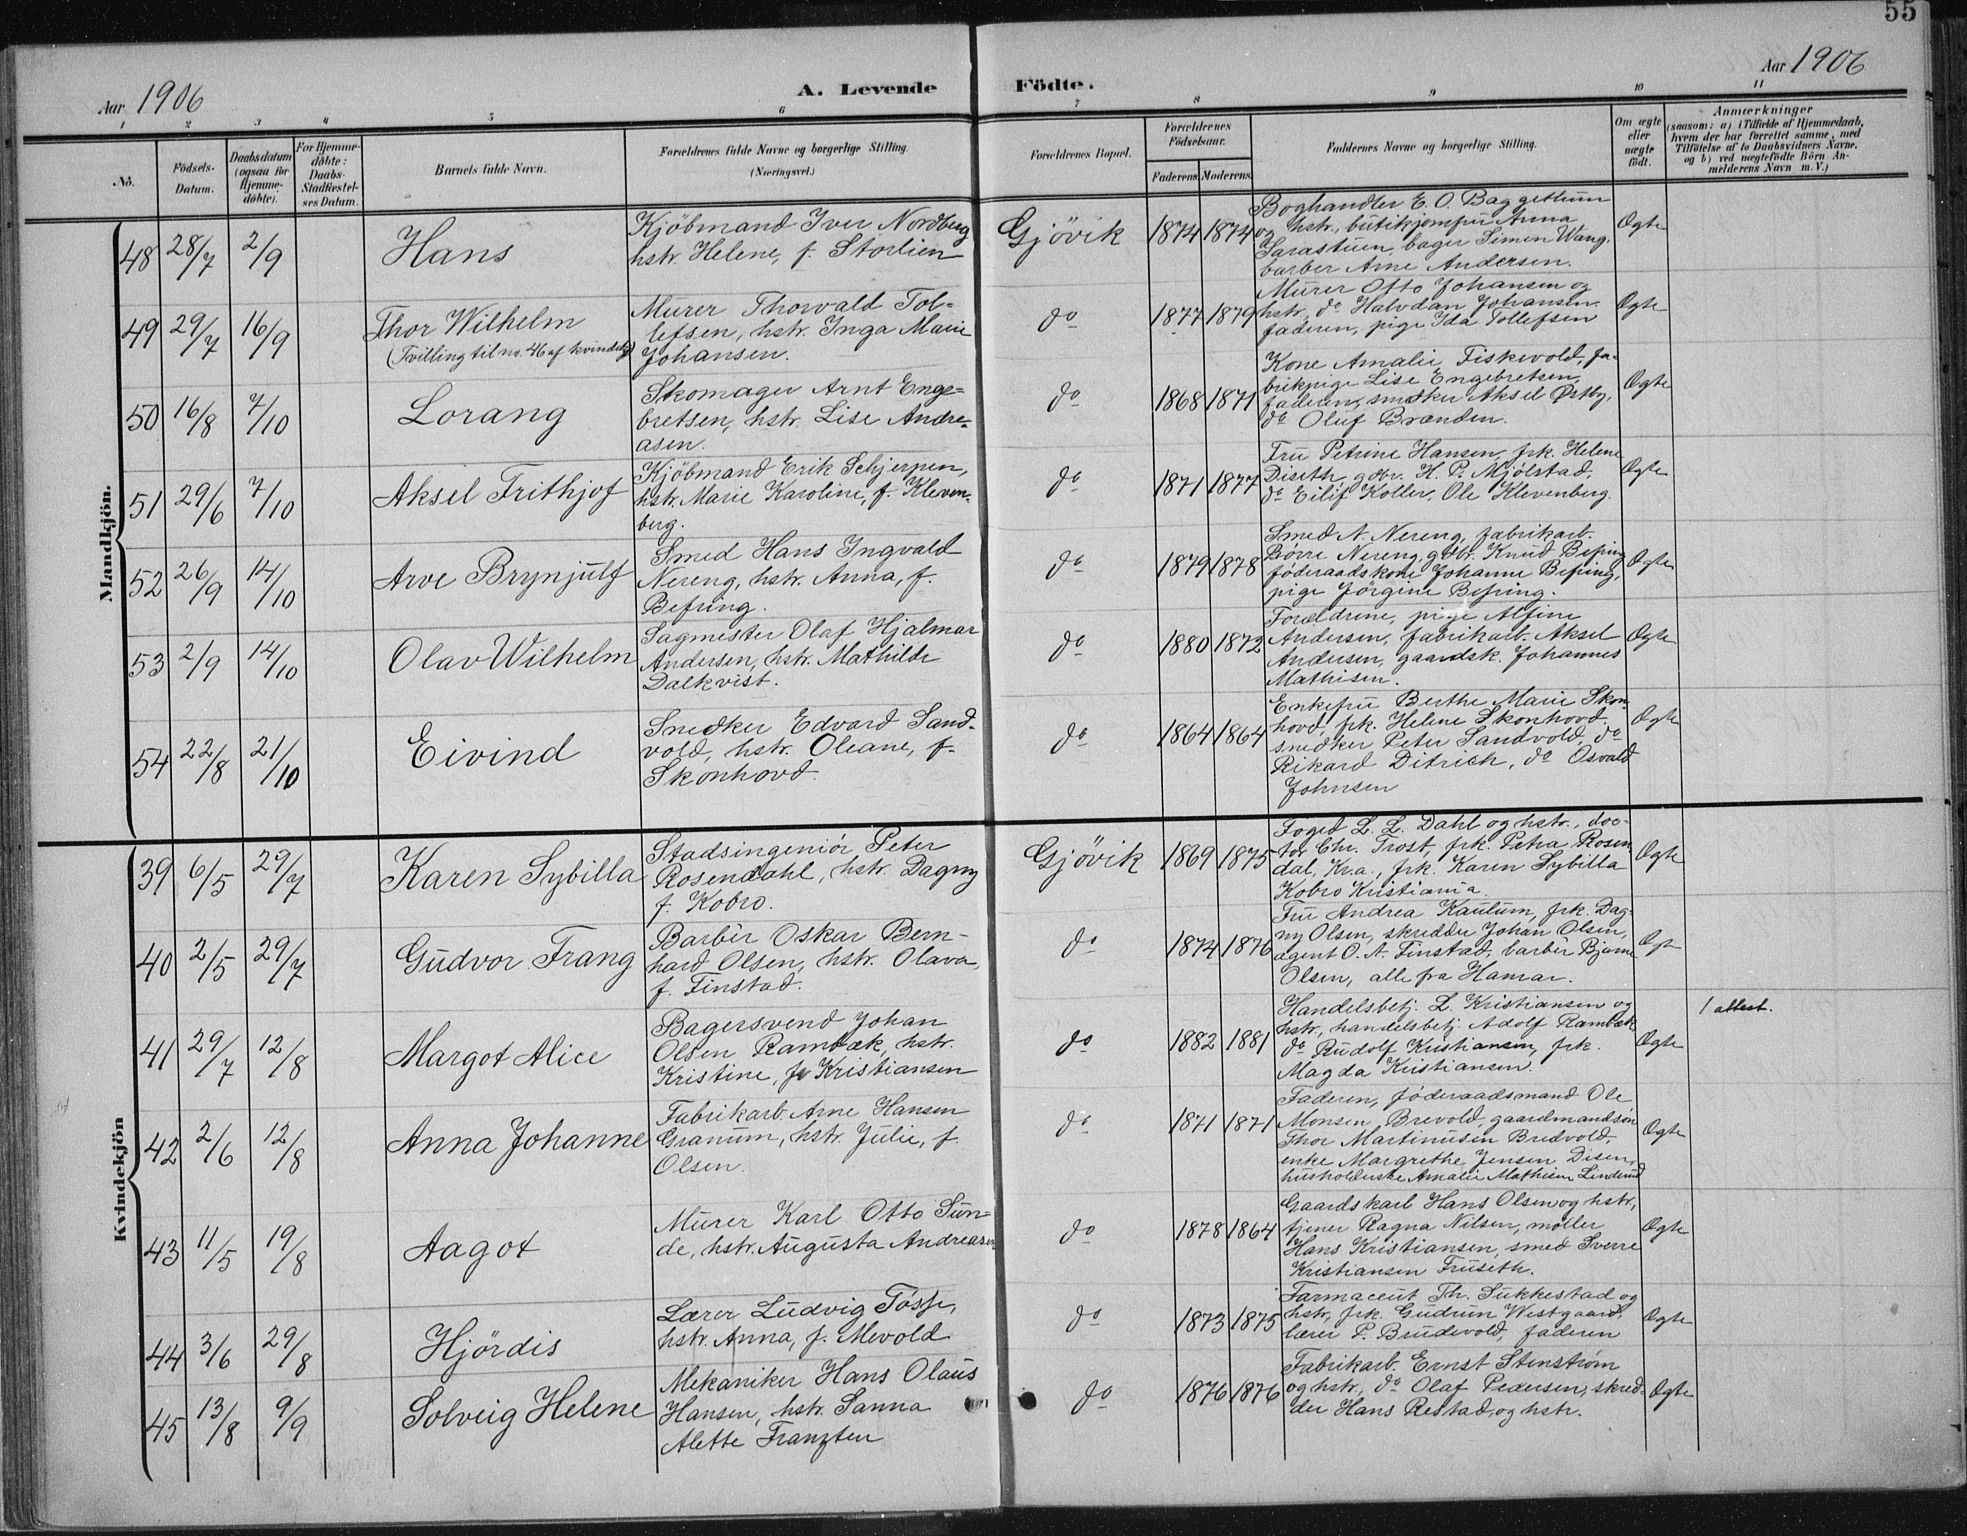 55
Aar 1906
A. Levende
Födte.
Aar 1906
1 2 3 4 5 6 7 8 9 10 11
No.
Födsels-
Datum.
Daabsdatum
(ogsaa for
Hjemme-
döbte).
For Hjemme-
döbte:
Daabs-
Stadfæstel-
ses Datum.
Barnets fulde Navn.
Forældrenes fulde Navne og borgerlige Stilling.
(Næringsvei.)
Forældrenes Bopæl.
Forældrenes
Födselsaar.
Faderens. Moderens.
Faddernes Navne og borgerlige Stilling.
Om ægte
eller
uægte
födt.
Anmærkninger
(saasom: a) i Tilfælde af Hjemmedaab,
hvem der har forrettet samme, med
Tilföielse af to Daabsvidners Navne,
og b) ved uægtefödte Börn An-
melderens Navn m. V.)
Mandkjön.
48 28/7 2/9
Hans
Kjöbmand Iver Nordberg
hstr. Helene, f. Storlien
Gjövik
1874 1874
Boghandler E. O. Baggettum
og hstr., butikjomfru Anna
Sarastuen, bager Simen Wang,
barber Arne Andersen.
Ægte
49 29/7 16/9
Thor Wilhelm
(Tvilling til no. 46 af kvindekj)
Murer Thorvald Tol-
lefsen, hstr. Inga Marie
Johansen.
do
1877 1879
Murer Otto Johansen og
hstr., do Halvdan Johansen
faderen, pige Ida Tollefsen
Ægte
50 16/8 7/10
Lorang
Skomager Arnt Enge-
bretsen, hstr. Lise Andre-
asen.
do
1868 1871
Kone Amalie Fiskevold, fa-
brikpige Lise Engebretsen,
faderen, snedker Aksel Østby,
do Oluf Brænden.
Ægte
51 29/6 7/10
Aksel Frithjof
Kjöbmand Erik Schjerpen,
hstr. Marie Karoline, f. Kleven-
berg.
do
1871 1877
Fru Petrine Hansen, frk. Helene
Diseth, gdbr. H. P. Mjölstad,
do Eilif Koller, Ole Klevenberg.
Ægte
52 26/9 14/10
Arve Brynjulf
Smed Hans Ingvald
Nereng, hstr. Anna, f.
Befring.
do
1879 1878
Smed A. Nereng, fabrikarb.
Børre Nereng, gdbr. Knud Befring
føderaadskone Johanne Befring,
pige Jörgine Befring.
Ægte
53 2/9 14/10
Olav Wilhelm
Sagmester Olaf Hjalmar
Andersen, hstr. Mathilde
Dalkvist.
do
1880 1872
Forældrene, pige Alfine
Andersen, fabrikarb. Aksel
Andersen, gaardsk. Johannes
Mathisen.
Ægte
54 22/8 21/10
Eivind
Snedker Edvard Sand-
vold, hstr. Oleane, f.
Skonhovd.
do
1864 1864
Enkefru Berthe Marie Skon
hovd, frk. Helene Skonhovd,
snedker Peter Sandvold, do
Rikard Ditrich, do Osvald
Johnsen
Ægte
Kvindekjön
39 6/5 29/7
Karen Sybilla
Stadsingeniör Peter
Rosendahl, hstr. Dagny
f. Kobro.
Gjövik
1869 1875
Foged L. L. Dahl og hstr., doc-
tor Chr. Trost, frk. Petra Rosen
dal, Kra., frk. Karen Sybilla
Kobro Kristiania.
Ægte
40 2/5 29/7
Gudvor Frang
Barbér Oskar Bern-
hard Olsen, hstr. Olava,
f. Finstad.
do
1874 1876
Fru Andrea Kaulum, frk. Dag-
ny Olsen, skrædder Johan Olsen,
agent O. A. Finstad, barbér Bjarne
Olsen, alle fra Hamar.
Ægte
41 29/7 12/8
Margot Alice
Bagersvend Johan
Olsen Rambæk, hstr.
Kristine, f. Kristiansen
do
1882 1881
Handelsbetj. L. Kristiansen og
hstr., handelsbetj. Adolf Rambæk
do Rudolf Kristiansen, frk.
Magda Kristiansen.
Ægte
1 attest.
42 2/6 12/8
Anna Johanne
Fabrikarb. Arne Hansen
Granum, hstr. Julie, f.
Olsen.
do
1871 1871
Faderen, føderaadsmand Ole
Monsen Brevold, gaardmandsøn
Thor Martinusen Bredvold,
enke Margrethe Jensen Disen,
husholderske Amalie Mathisen Linderud
Ægte
43 11/5 19/8
Aagot
Murer Karl Otto Sun-
de, hstr. Augusta Andreasen
do
1878 1864
Gaardskarl Hans Olsen og hstr.,
tjener Ragna Nilsen, møller
Hans Kristiansen, smed Sverre
Kristiansen Fruseth.
Ægte
44 3/6 29/8
Hjördis
Lærer Ludvig Tösse,
hstr. Anna, f. Mevold
do
1873 1875
Farmaceut Th. Sukkestad og
hstr., frk. Gudrun Westgaard,
lærer P. Brudevold, faderen
Ægte
45 13/8 9/9
Solveig Helene
Mekaniker Hans Olaus
Hansen, hstr. Sanna
Alette Frantzen
do
1876 1876
Fabrikarb. Ernst Stenstrøm
og hstr., do Olaf Pedersen, skræd-
der Hans Restad og hstr.
Ægte